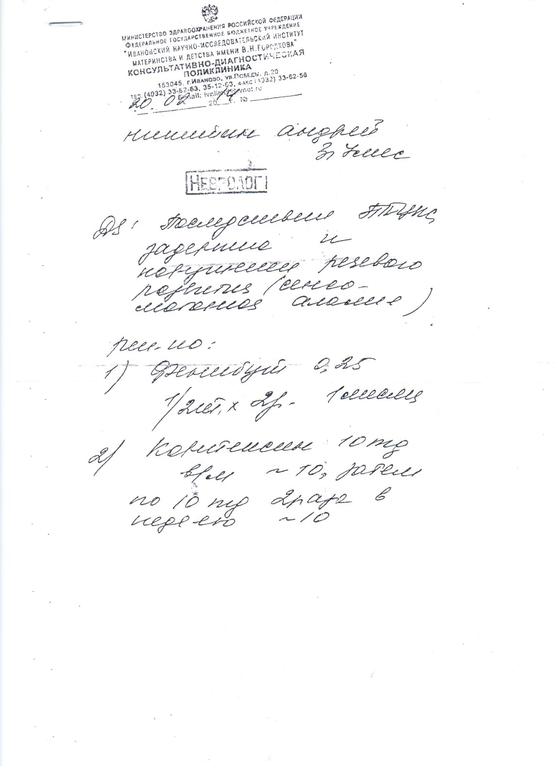 МИНИСТЕРСТВО ЗДРАВООХРАНЕНИЯ РОССИЙСКОЙ ФЕДЕРАЦИИ
ФЕДЕРАЛЬНОЕ ГОСУДАРСТВЕННОЕ БЮДЖЕТНОЕ УЧРЕЖДЕНИЕ
"ИВАНОВСКИЙ НАУЧНО-ИССЛЕДОВАТЕЛЬСКИЙ ИНСТИТУТ
МАТЕРИНСТВА И ДЕТСТВА ИМЕНИ В.Н.ГОРОДКОВА"
КОНСУЛЬТАТИВНО-ДИАГНОСТИЧЕСКАЯ
ПОЛИКЛИНИКА
153045, г.Иваново, ул.Победы, д.20
тел. (4932) 33-62-63, 35-12-63, факс (4932) 33-62-56
20.02
Никитин Андрей
3г 7мес
НЕВРОЛОГ
DS: Последствия ППЦНС,
задержка и
нарушения речевого
развития (сенсо-
моторная алалия)
рек-но:
1) Фенибут 0,25
1/2т. х 2р. 1 месяц
2) Кортексин 10 mg
в/м ~ 10, затем
по 10 mg 2 раза в
неделю ~ 10